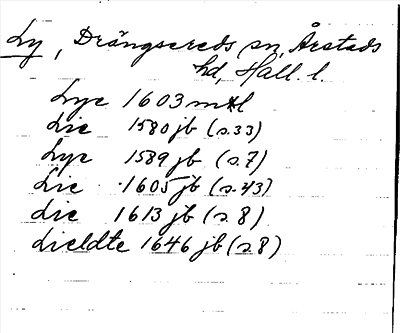 Ly, Drängsereds sn, Årstads
hd, Hall. l.
Lye 1603 mtl
Lie 1580 jb (s.33)
Lye 1589 jb (s.7)
Lie 1605 jb (s.43)
Lie 1613 jb (s.8)
Lieldte 1646 jb (s.8)